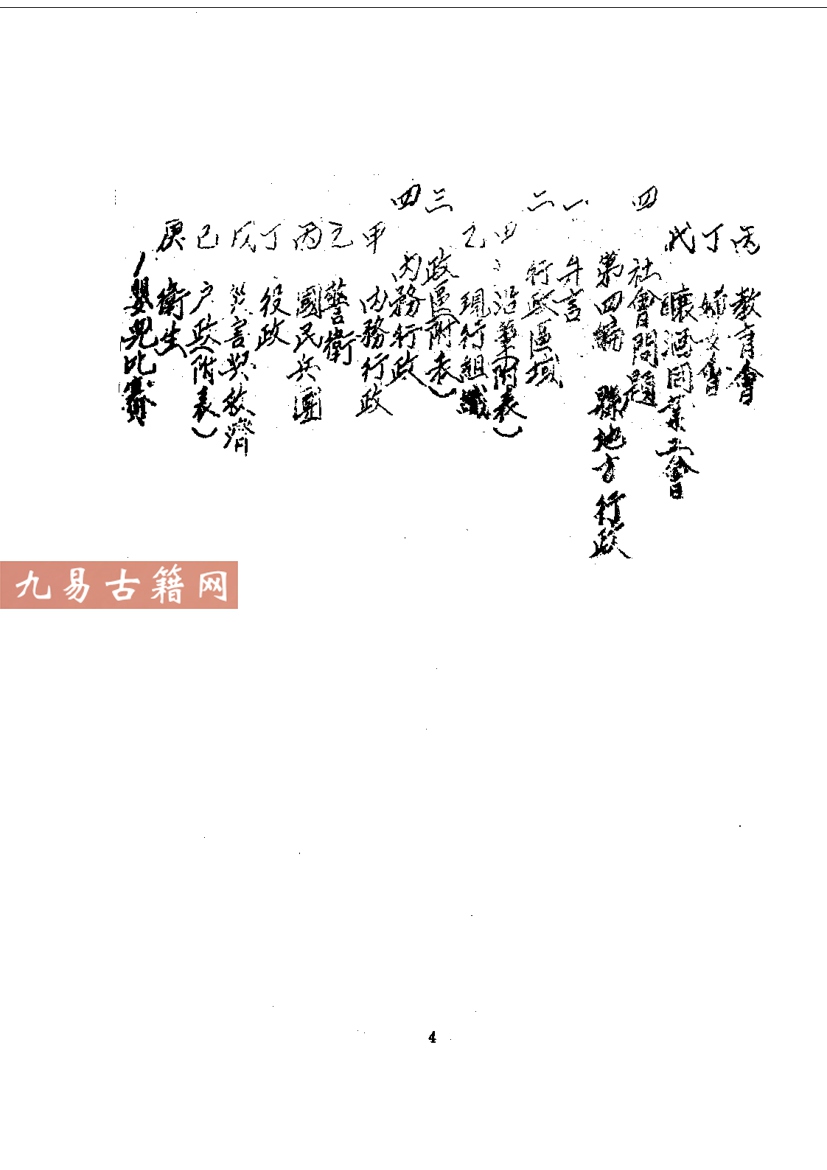 丙 教育會
丁 婦女會
戊 釀酒同業工會
四 社會問題
第四編 縣地方行政
一 弁言
二 行政區域
甲、沿革(附表)
乙 現行組織
三 政區(附表)
四 內務行政
甲 內務行政
乙 警衛
丙 國民兵團
丁 役政
戊 災害與救濟
己 户政(附表)
庚 衛生
1 嬰兒比賽
九易古籍网
4